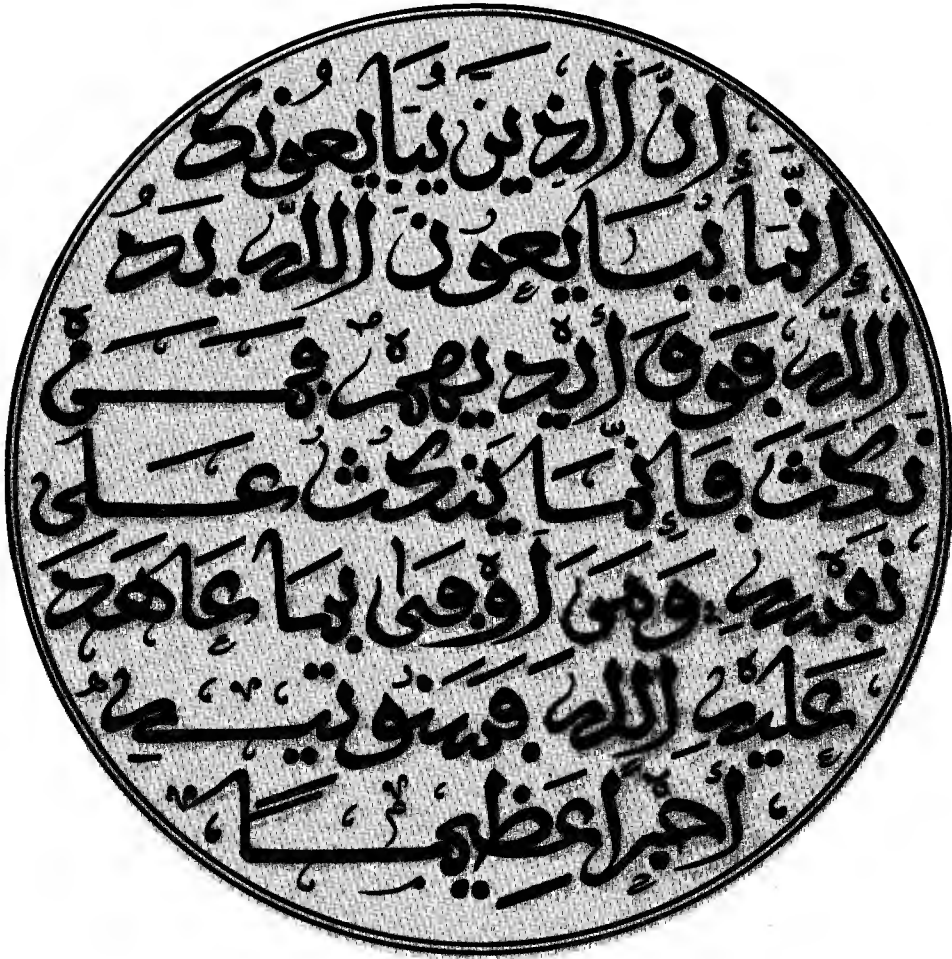 إِنَّ ٱلذِينَ يُبَايِعُونَكَ
إِنَّمَا يُبَايِعُونَ ٱللَّهَ يَدُ
ٱللَّهِ فَوْقَ أَيْدِيهِمْ فَمَن
نَّكَثَ فَإِنَّمَا يَنكُثُ عَلَىٰ
نَفْسِهِ وَمَنَ أَوْفَىٰ بِمَا عَاهَدَ
عَلَيْهِ ٱللَّهَ فَسَنُوتِيهِ
أَجْرًا عَظِيمًا